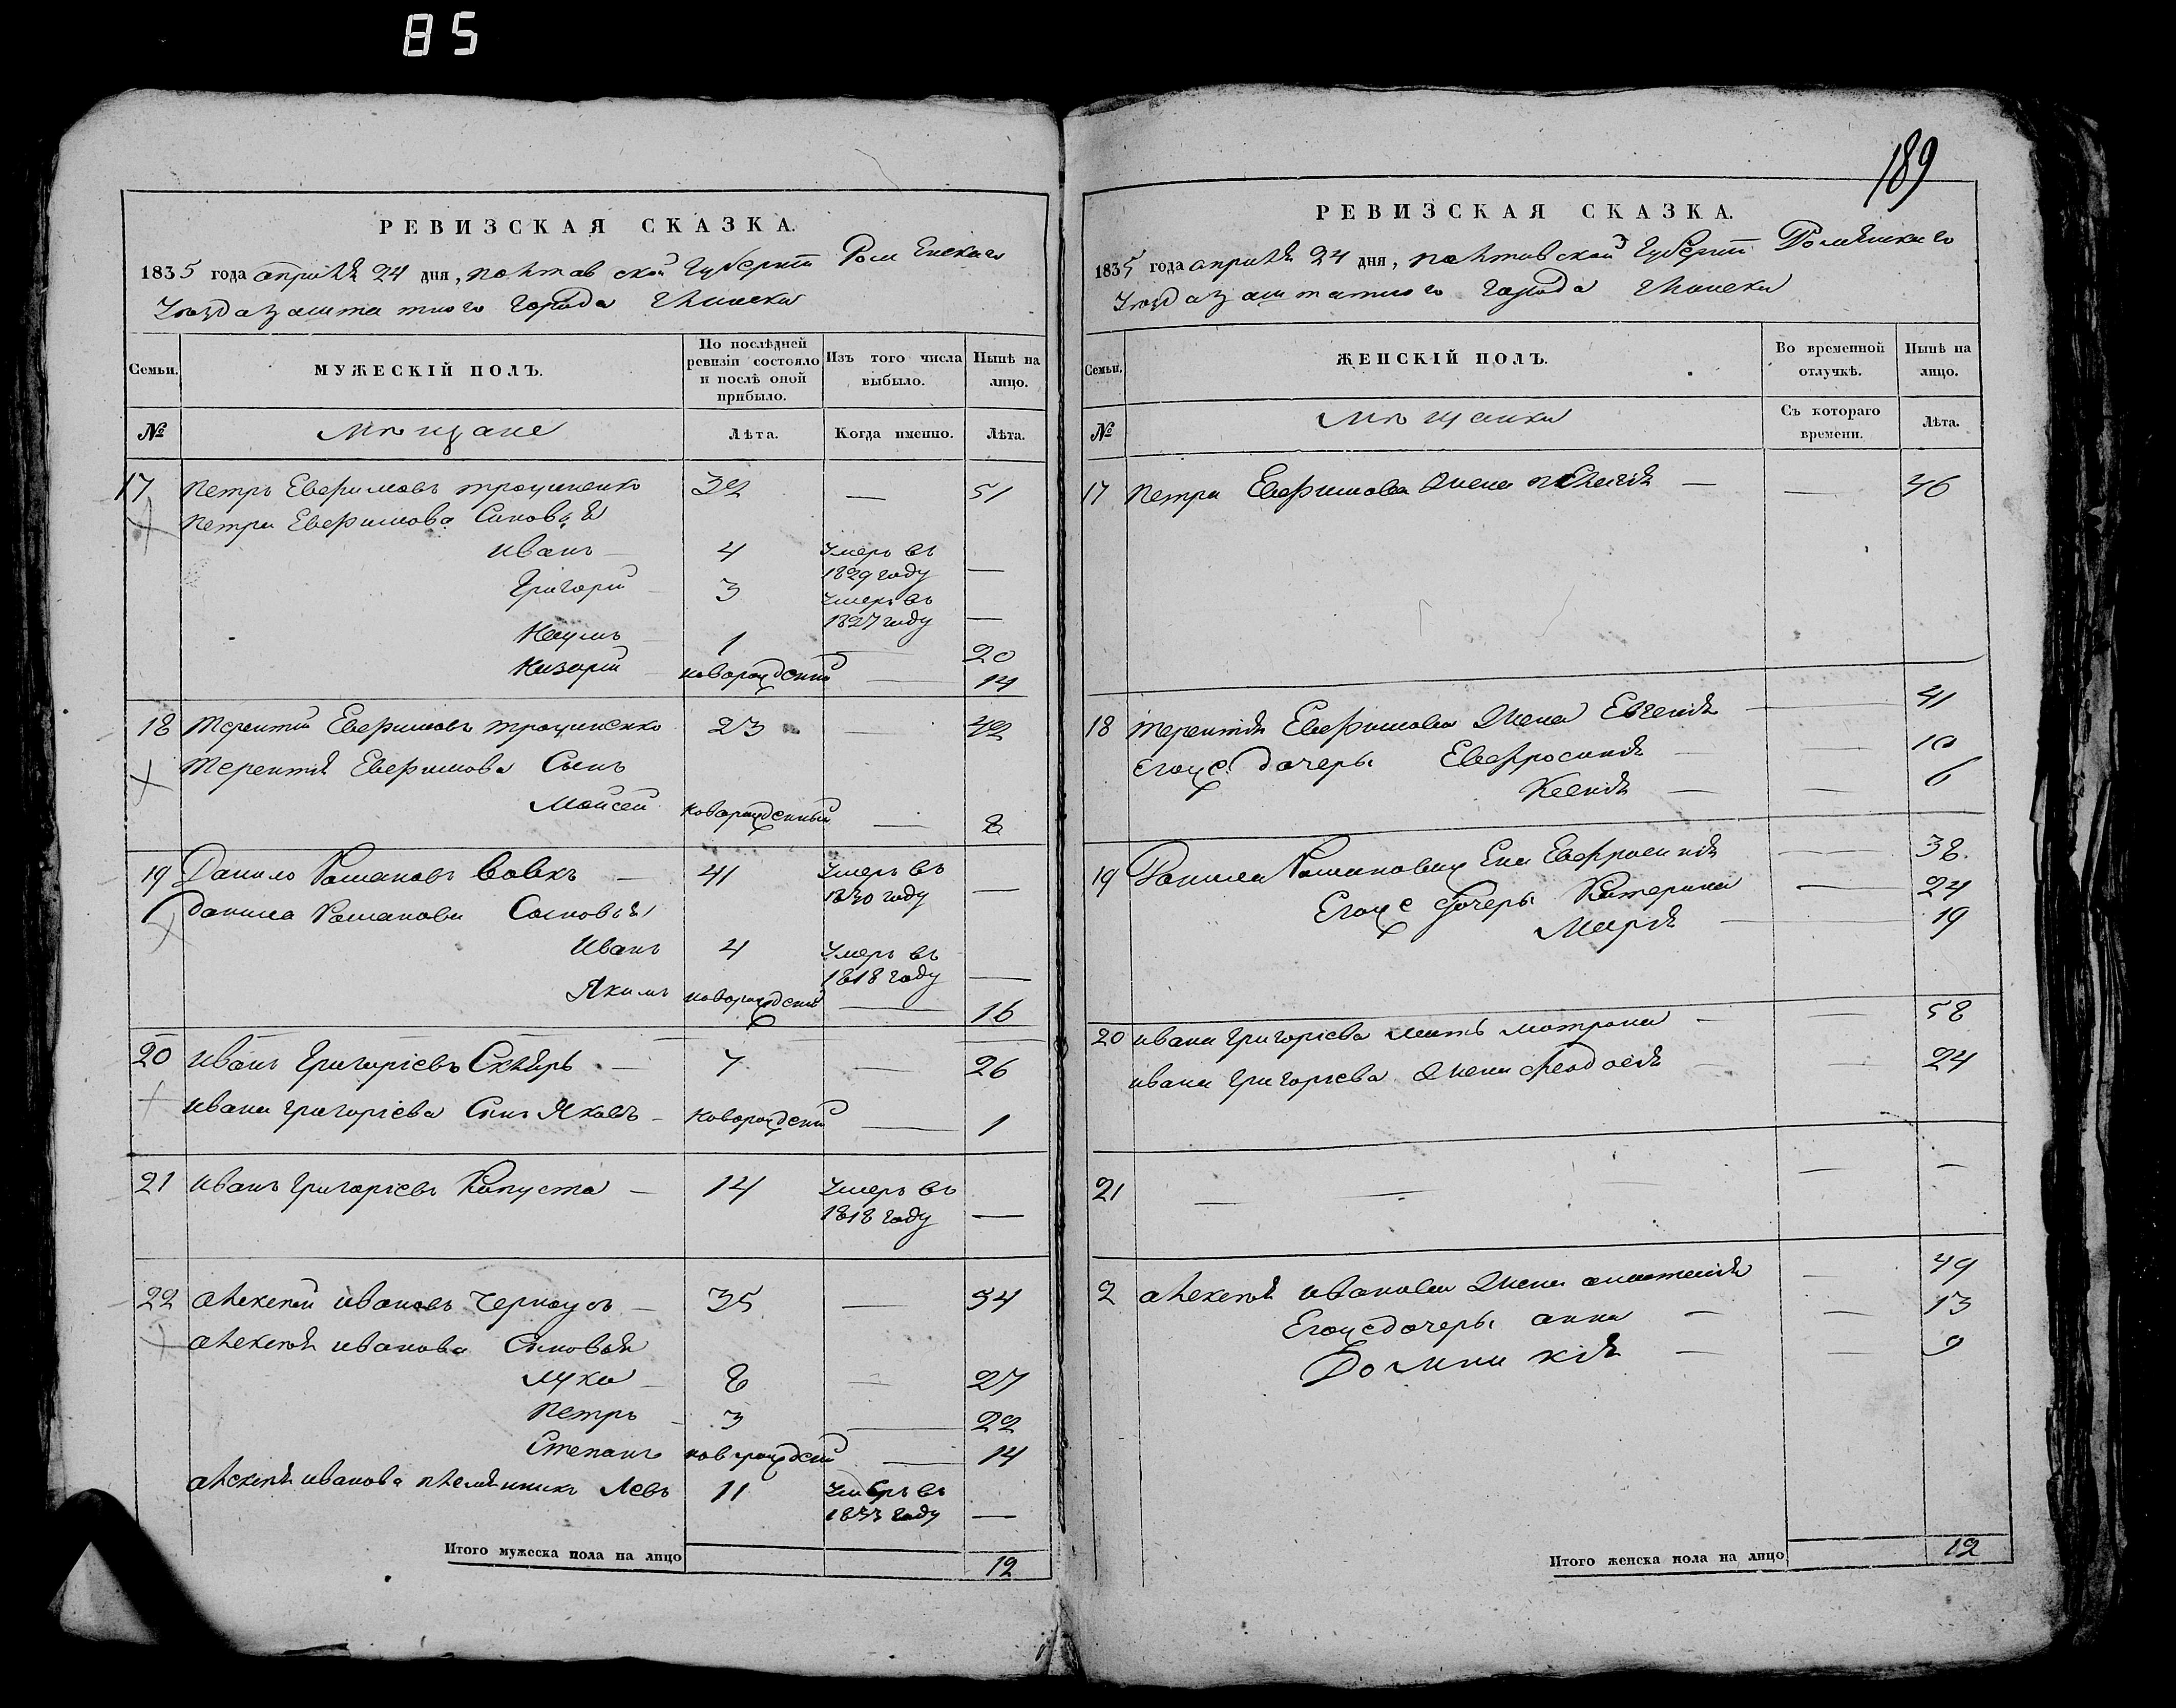 85
РЕВИЗСКАЯ СКАЗКА.
1835 года апрѣля 24 дня, полтавской Губерніи Роменскаго
Уѣзда заштатного города Глинска
Семьи.
МУЖЕСКІЙ ПОЛЪ.
По послѣдней ревизіи состояло и послѣ оной прибыло.
Изъ того числа выбыло.
Нынѣ на лицо.
№
мѣщане
Лѣта.
Когда именно.
Лѣта.
17 Петръ Евфимовъ трощиненко 32 — 51
Петра Евфимова Синовья
Иванъ — 4 Умеръ въ 1829 году —
Григорій — 3 Умеръ въ 1827 году —
Наумъ — 1 — 20
Назарій — новорожденій — 14
18 Терентій Евфимовъ трощиненко 23 — 42
Терентія Евфимова Сынъ
Моисей новорожденный — 8
19 Данило Романовъ Вовкъ — 41 Умеръ въ 1830 году —
Данила Романова Сыновья
Иванъ 4 Умеръ въ 1818 году —
Якимъ новорожденій — 16
20 Иванъ Григоріевъ — 7 — 26
Ивана Григоріева Синъ Яковъ — новорожденій — 1
21 Иванъ Григоріевъ Капуста — 14 Умеръ въ 1818 году —
22 Алексѣй Ивановъ Черноусъ — 35 — 54
Алексѣя Иванова Сыновья
Лука — 8 — 27
Петръ — 3 — 22
Степанъ новорожденій — 14
Алексѣя Иванова племянникъ Левъ 11 Умеръ въ 1833 году —
Итого мужеска пола на лицо 12
189
РЕВИЗСКАЯ СКАЗКА.
1835 года апрѣля 24 дня, полтавской Губерніи Роменскаго
Уѣзда заштатного города Глинска
Семьи.
ЖЕНСКІЙ ПОЛЪ.
Во временной отлучкѣ.
Нынѣ на лицо.
№
мѣщанки
Съ котораго времени.
Лѣта.
17 Петра Евфимова жена пелагія — — 46
18 Терентія Евфимова жена Евгенія — 41
Егоже дочеры Евфросинія — — 10
Ксенія — — 6
19 Данила Романова жена Евфросинія — 38.
Егоже дочеры Катерина — 24
Марія — 19
20 Ивана Григоріева мать мотрона — — 58
Ивана Григоріева жена феодосія — — 24
21 — — — —
2 Алексѣя Иванова жена анастасія — 49
Егоже дочеры анна — — 13
Домникія — — 9
Итого женска пола на лицо 12